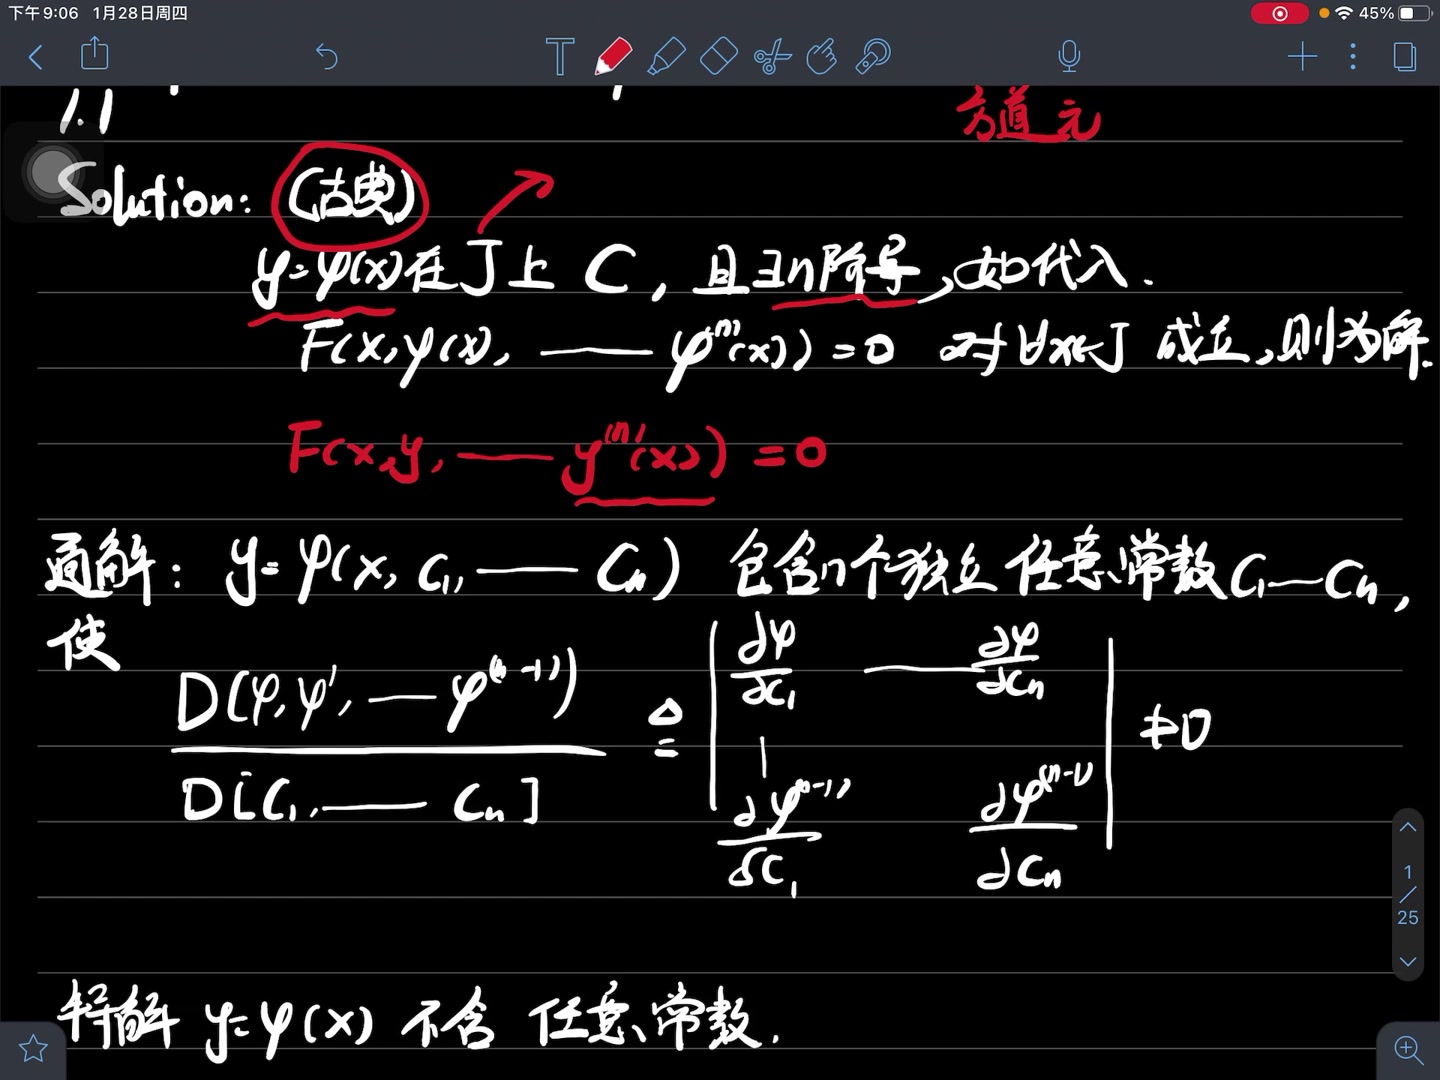 下午9:06 1月28日周四
45%
1.1
方道元
Solution: (古典)
y=φ(x)在J上C,且∃n阶导,如代入.
F(x,φ(x),——φ⁽ⁿ⁾(x))=0 对∀x∈J成立,则为解.
F(x,y,——y⁽ⁿ⁾(x))=0
通解: y=φ(x,C₁,——Cₙ) 包含n个独立任意常数C₁—Cₙ,
使
D(φ,φ',—φ⁽ⁿ⁻¹⁾) / D[C₁,——Cₙ] ≜ | ∂φ/∂C₁ —— ∂φ/∂Cₙ
| ∂φ⁽ⁿ⁻¹⁾/∂C₁ ∂φ⁽ⁿ⁻¹⁾/∂Cₙ | ≠0
特解 y=φ(x) 不含任意常数.
1
/
25